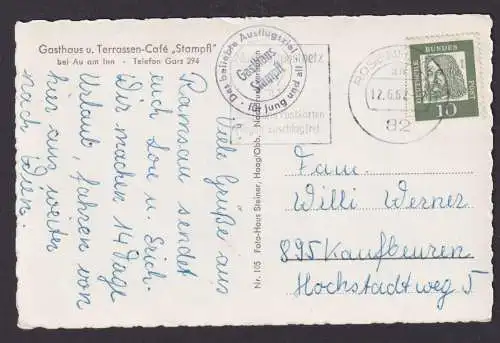 Gasthaus u. Terrassen-Café „Stampfl"
bei Au am Inn - Telefon Gars 294
Viele Grüße aus
Ramsau sendet
euch Lore u. Erich.
Wir machen 14 Tage
Urlaub, fahren von
hier aus weiter
nach Wien.
Nr. 105 Foto-Haus Steiner, Haag/Obb.
Das beliebte Ausflugsziel
für jung und alt
Gasthaus
Stampfl
Postkarten
zuschlagfrei
12.6.62
82
DEUTSCHE
BUNDES
POST
10
Fam.
Willi Werner
895 Kaufbeuren
Hochstadtweg 5